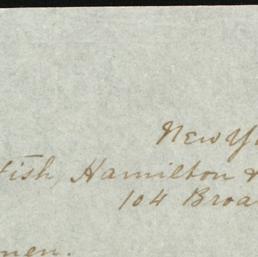 New Y
Fish, Hamilton &
104 Broa
men.